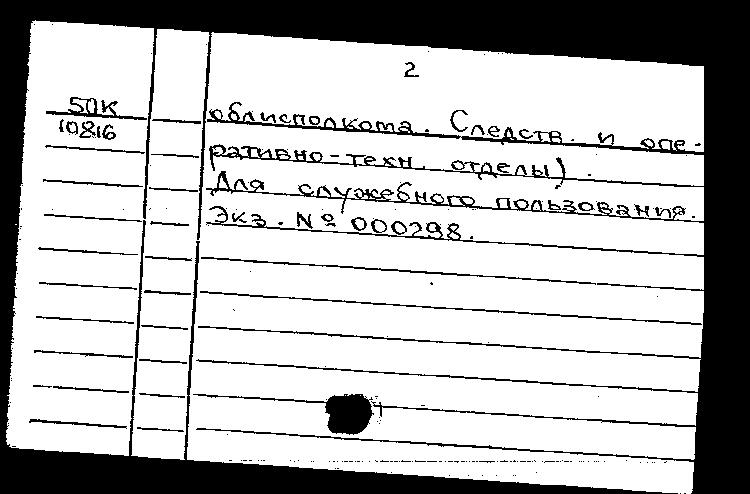 2
50К
10816
облисполкома. Следств. и опе-
ративно-техн. отделы).
Для служебного пользования.
Экз. № 000298.